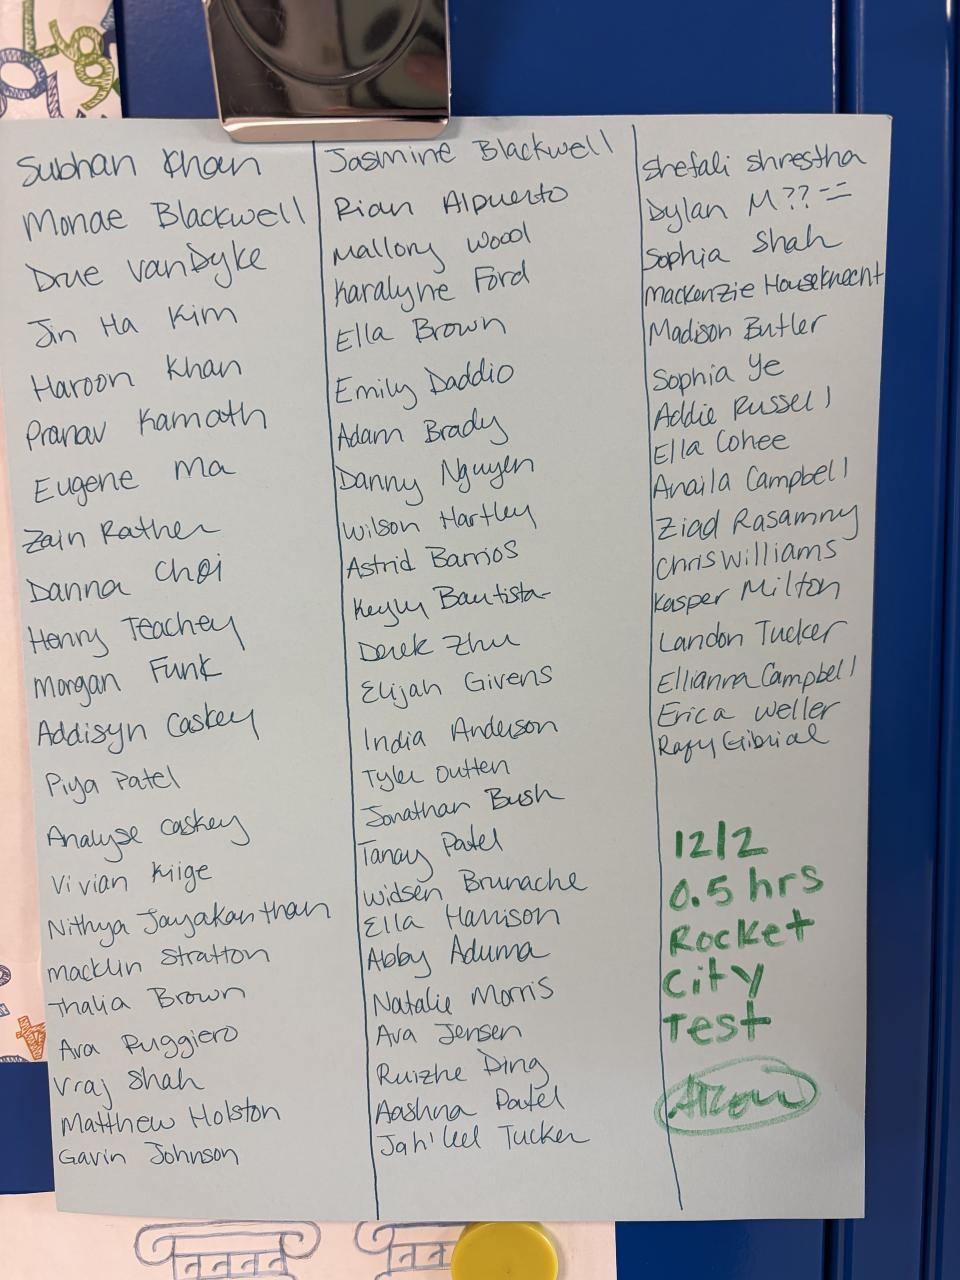 Subhan Khan
Monae Blackwell
Drue VanDyke
Jin Ha Kim
Haroon Khan
Pranav Kamath
Eugene Ma
Zain Rather
Danna Choi
Henry Teachey
Morgan Funk
Addisyn Caskey
Piya Patel
Analyse Caskey
Vivian Kiige
Nithya Jayakanthan
Macklin Stratton
Thalia Brown
Ava Ruggiero
Vraj Shah
Matthew Holston
Gavin Johnson
Jasmine Blackwell
Rian Alpuerto
Mallory Wood
Karalyne Ford
Ella Brown
Emily Daddio
Adam Brady
Danny Nguyen
Wilson Hartley
Astrid Barrios
Keyly Bautista
Derek Zhu
Elijah Givens
India Anderson
Tyler Outten
Jonathan Bush
Tanay Patel
Widsen Brunache
Ella Harrison
Abby Aduma
Natalie Morris
Ava Jensen
Ruizhe Ding
Aashna Patel
Jah'lel Tucker
Shefali Shrestha
Dylan M??
Sophia Shah
Mackenzie Houseknecht
Madison Butler
Sophia Ye
Addie Russell
Ella Cohee
Anaila Campbell
Ziad Rasamny
Chris Williams
Kasper Milton
Landon Tucker
Ellianna Campbell
Erica Weller
Rafy Gibrial
12/2
0.5 hrs
Rocket
City
Test